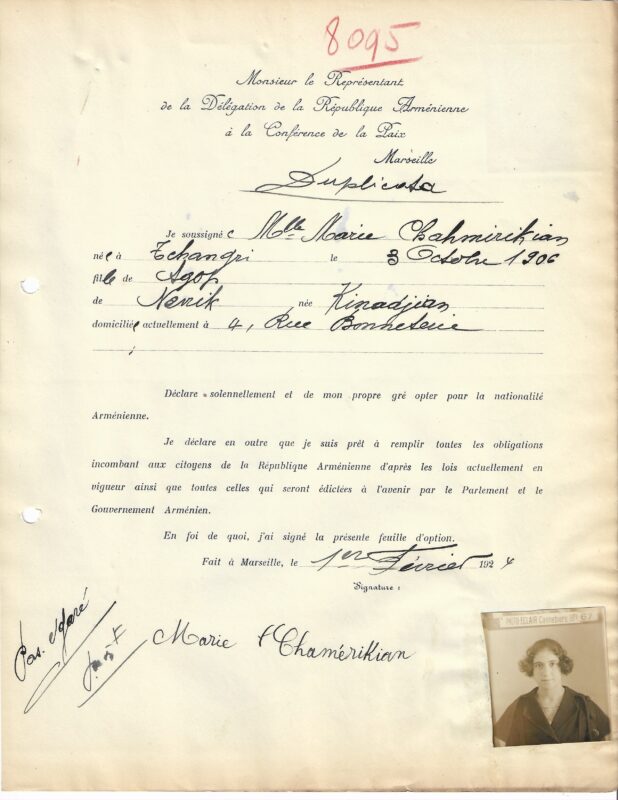 8095
Monsieur le Représentant
de la Délégation de la République Arménienne
à la Conférence de la Paix
Marseille
Duplicata
Je soussigné e Mlle Marie Chahmirikian
née à Tchangri le 3 Octobre 1906
fille de Agop
de Nevrik née Kinadjian
domiciliée actuellement à 4, Rue Bonneterie
Déclare solennellement et de mon propre gré opter pour la nationalité
Arménienne.
Je déclare en outre que je suis prêt à remplir toutes les obligations
incombant aux citoyens de la République Arménienne d'après les lois actuellement en
vigueur ainsi que toutes celles qui seront édictées à l'avenir par le Parlement et le
Gouvernement Arménien.
En foi de quoi, j'ai signé la présente feuille d'option.
Fait à Marseille, le 1er Février 1924
Signature :
Pas. égaré
Marie Chamérikian
PHOTO-ECLAIR Cannebière